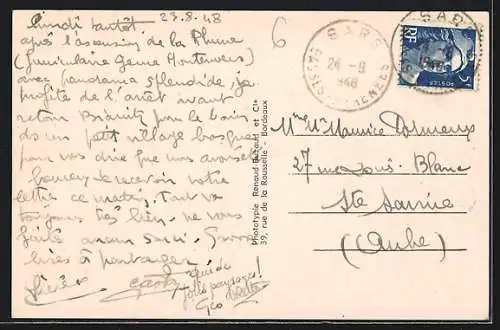 Lundi tantôt 23.8.48
après l'ascension de la Rhune
(funiculaire genre Montenvers)
avec panorama splendide, je
profite de l'arrêt avant
retour Biarritz pour le bain
ds un petit village basque
pour vous dire que nous avons été
heureux de recevoir votre
lettre ce matin. Tout va
toujours très bien, ne vous
faites aucun souci.
à partager
que de
jolis paysages!
6
SARE
24 -8
1948
BASSES-PYRENEES
SARE
RF
POSTES
5F
Phototypie Renaud-Buzaud et Cie
39, rue de la Rousselle - Bordeaux
Mme Mr Maurice
27 rue Louis Blanc
Ste Savine
(Aube)